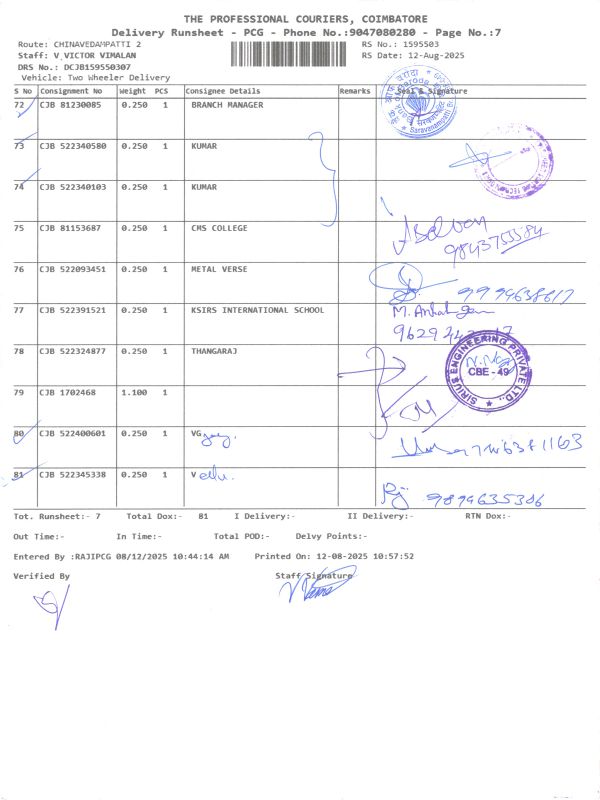 THE PROFESSIONAL COURIERS, COIMBATORE
Delivery Runsheet - PCG - Phone No.:9047080280 - Page No.:7
Route: CHINAVEDAMPATTI 2 RS No.: 1595503
Staff: V VICTOR VIMALAN RS Date: 12-Aug-2025
DRS No.: DCJB159550307
Vehicle: Two Wheeler Delivery
S No Consignment No Weight PCS Consignee Details Remarks Seal & Signature
72 CJB 81230085 0.250 1 BRANCH MANAGER
73 CJB 522340580 0.250 1 KUMAR
74 CJB 522340103 0.250 1 KUMAR
75 CJB 81153687 0.250 1 CMS COLLEGE
9843755584
76 CJB 522093451 0.250 1 METAL VERSE
9994638617
77 CJB 522391521 0.250 1 KSIRS INTERNATIONAL SCHOOL
78 CJB 522324877 0.250 1 THANGARAJ
SIRIUS ENGINEERING PRIVATE LTD.,
CBE - 49
79 CJB 1702468 1.100 1
80 CJB 522400601 0.250 1 VG
81 CJB 522345338 0.250 1 Vellu.
Tot. Runsheet:- 7 Total Dox:- 81 I Delivery:- II Delivery:- RTN Dox:-
Out Time:- In Time:- Total POD:- Delvy Points:-
Entered By :RAJIPCG 08/12/2025 10:44:14 AM Printed On: 12-08-2025 10:57:52
Verified By Staff Signature